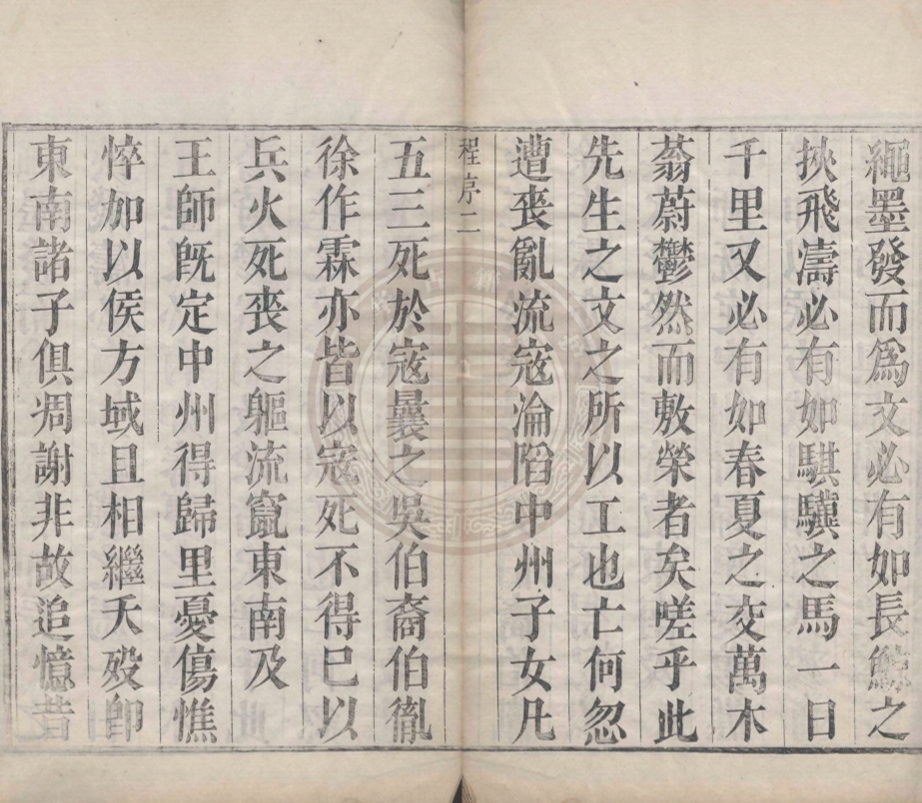 繩墨發而爲文必有如長鯨之
挾飛濤必有如騏驥之馬一日
千里又必有如春夏之交萬木
蓊蔚鬱然而敷榮者矣嗟乎此
先生之文之所以工也亡何忽
遭喪亂流寇淪陷中州子女凡
程序二
五三死於寇曩之吳伯裔伯胤
徐作霖亦皆以寇死不得已以
兵火死喪之軀流竄東南及
王師既定中州得歸里憂傷憔
悴加以侯方域且相繼夭歿卽
東南諸子俱凋謝非故追憶昔